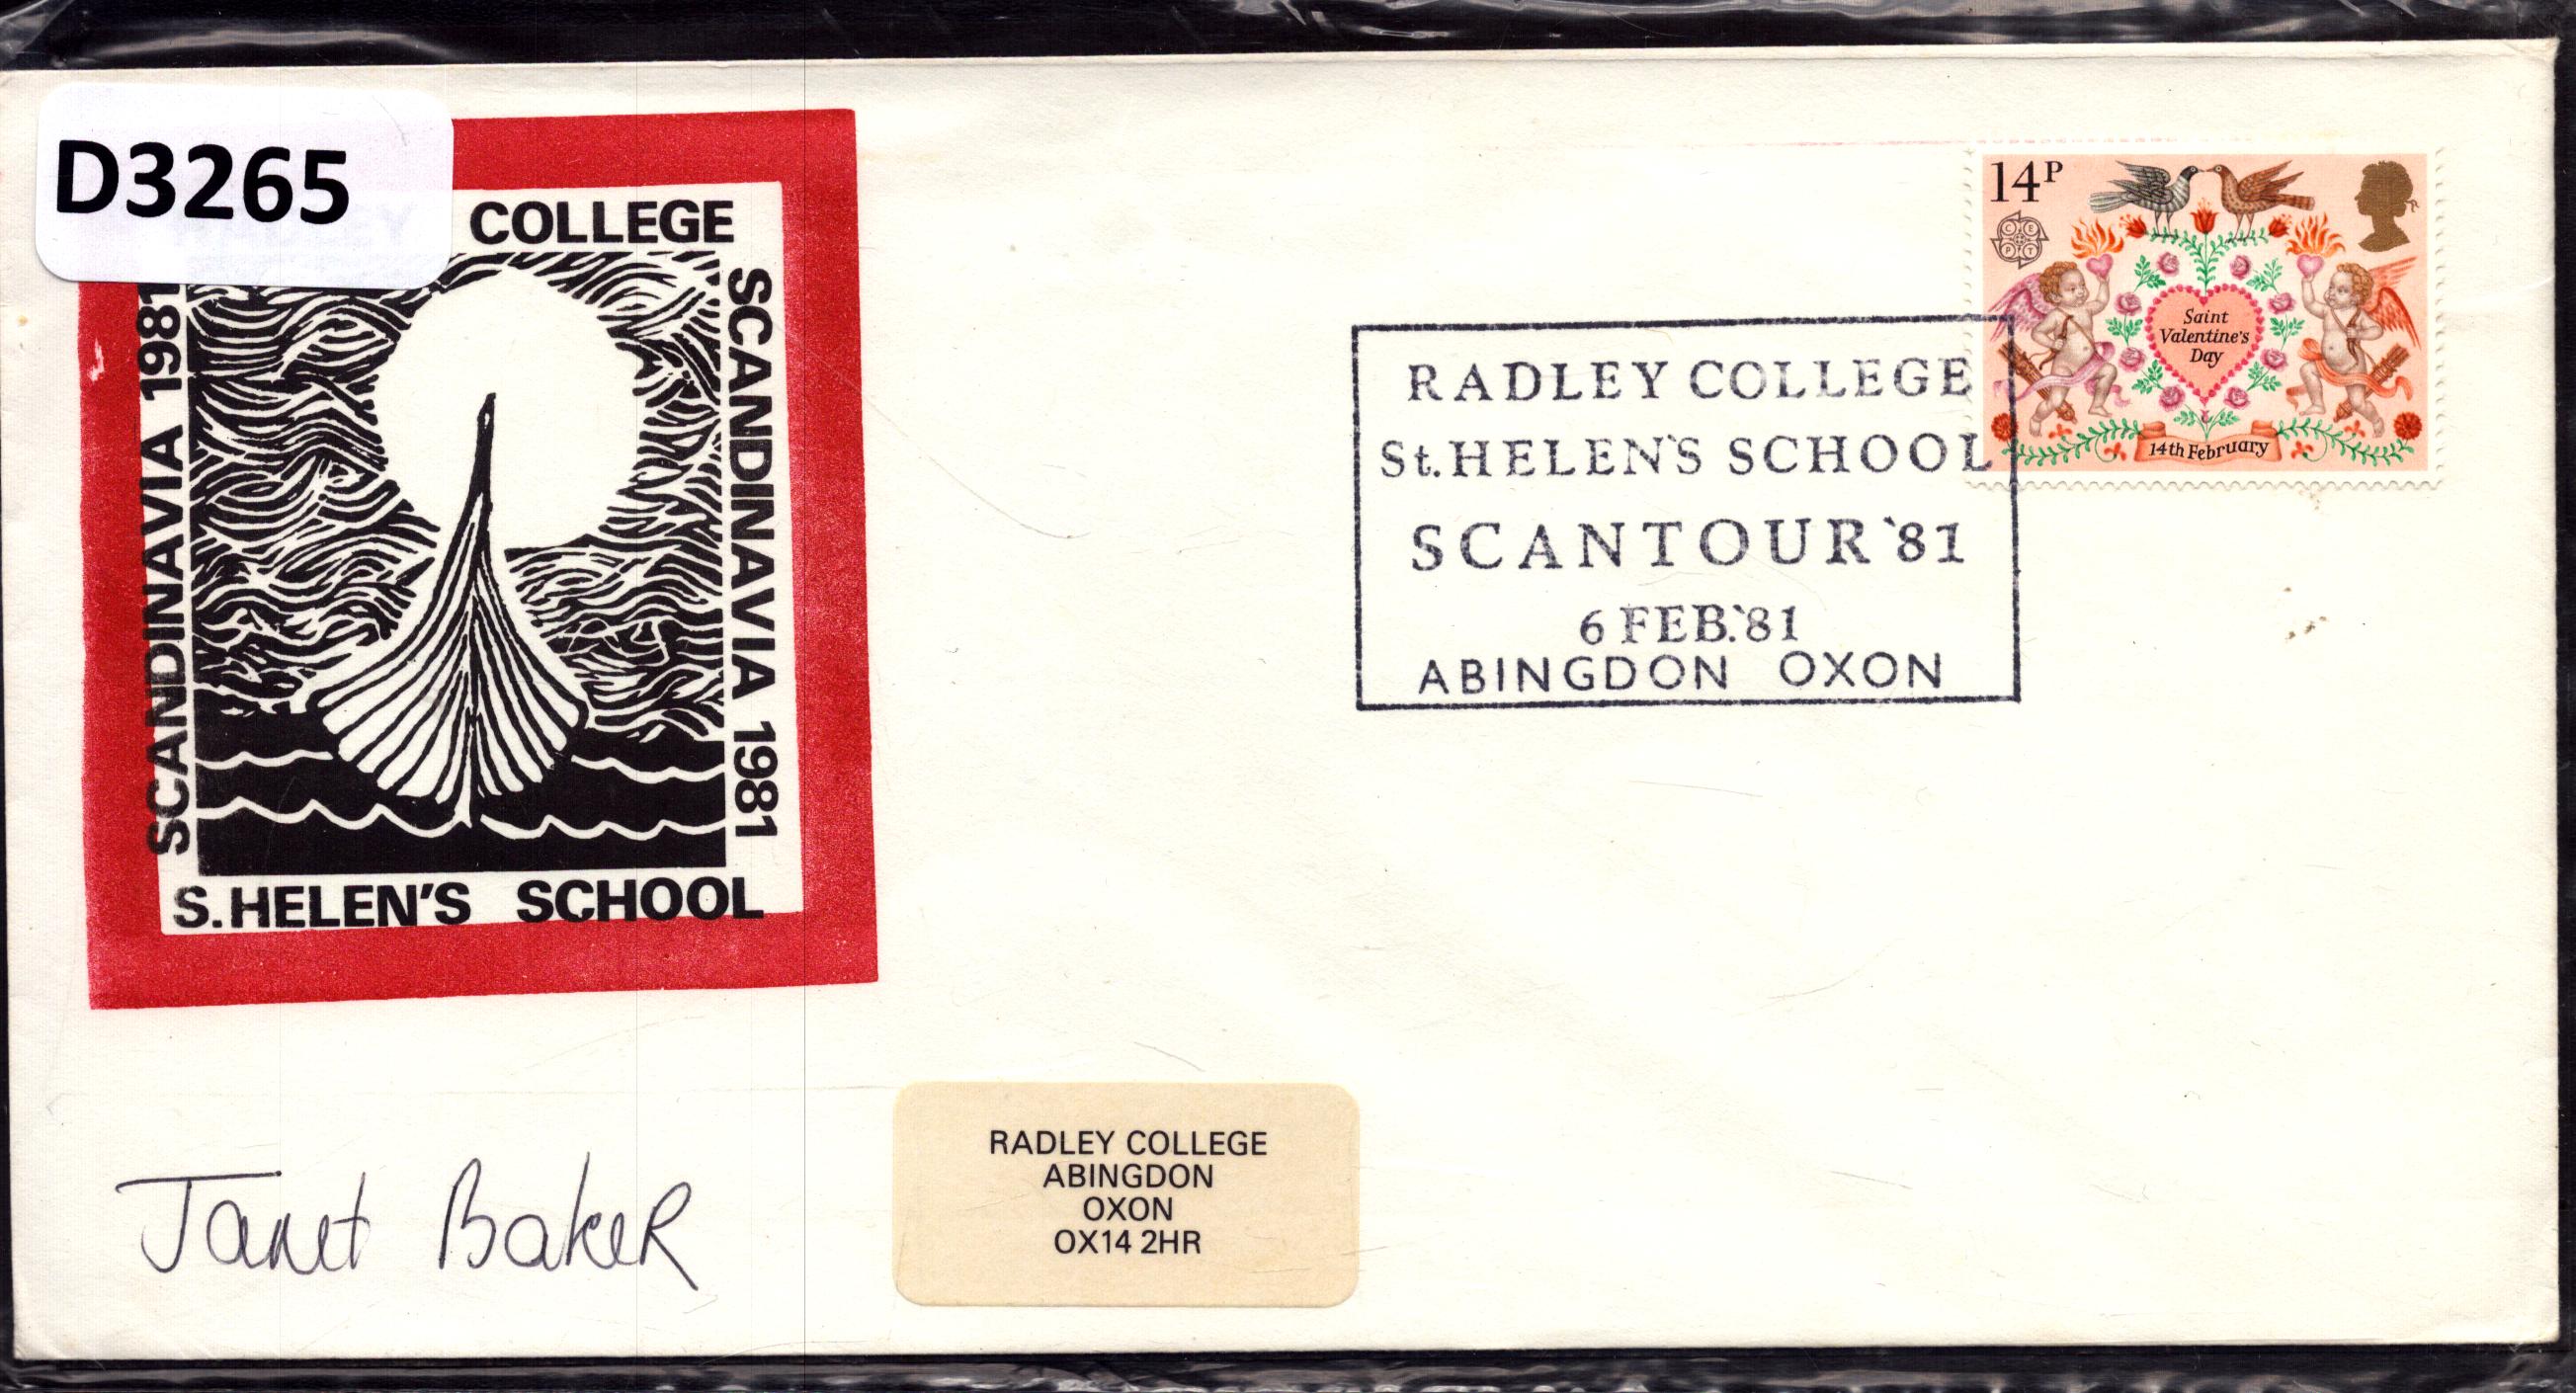 D3265
COLLEGE
SCANDINAVIA 1981
SCANDINAVIA 1981
S.HELEN'S SCHOOL
14P
CEPT
Saint
Valentine's
Day
14th February
RADLEY COLLEGE
St.HELEN'S SCHOOL
SCANTOUR'81
6 FEB.'81
ABINGDON OXON
Janet Baker
RADLEY COLLEGE
ABINGDON
OXON
OX14 2HR